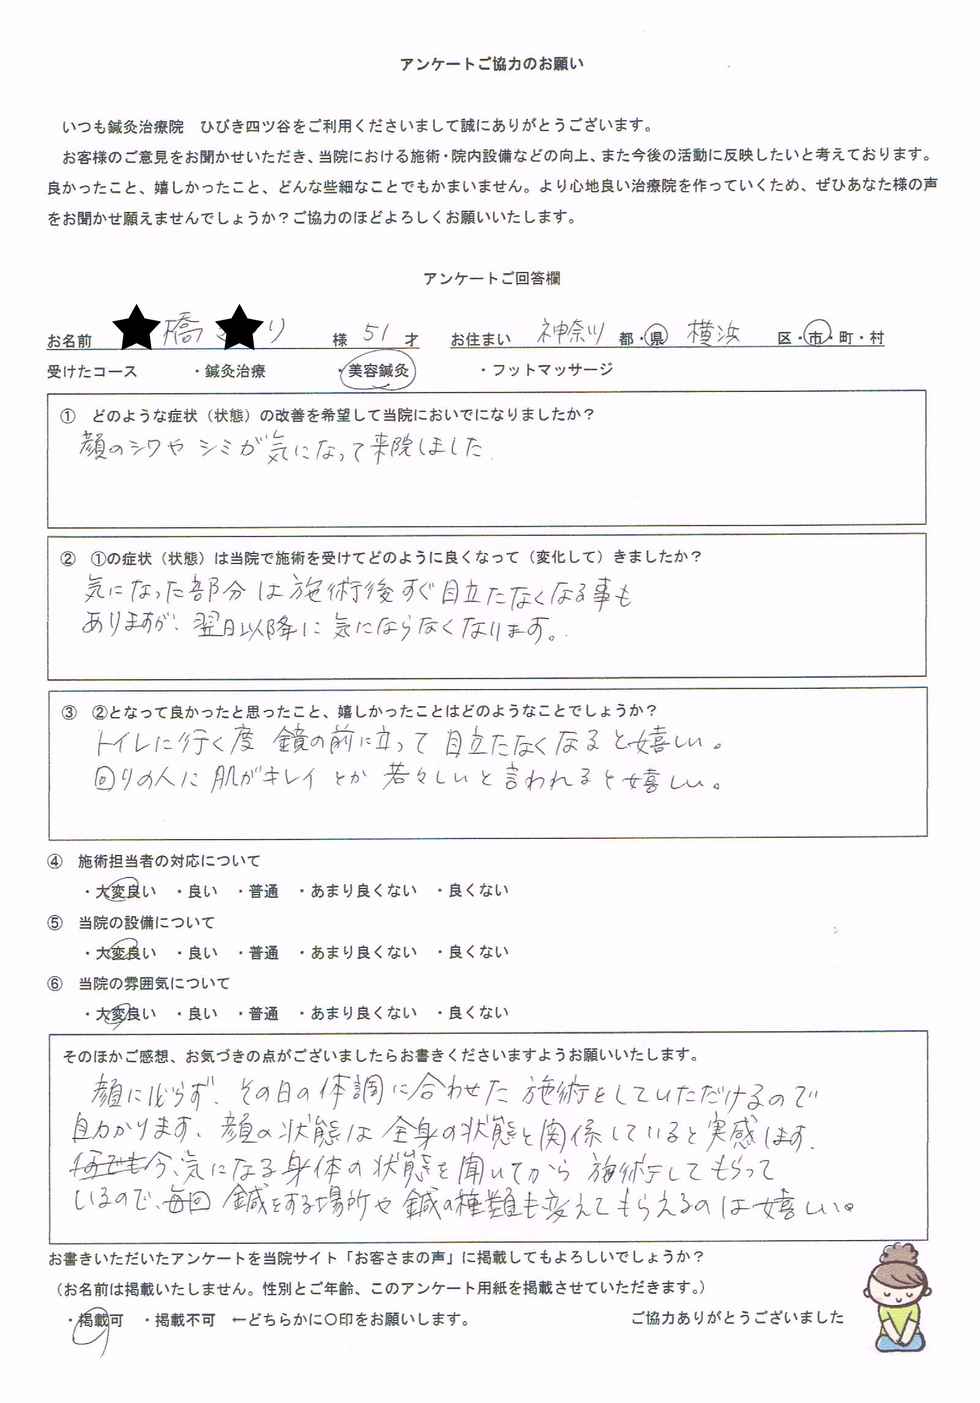 アンケートご協力のお願い
いつも鍼灸治療院　ひびき四ツ谷をご利用くださいまして誠にありがとうございます。
お客様のご意見をお聞かせいただき、当院における施術・院内設備などの向上、また今後の活動に反映したいと考えております。
良かったこと、嬉しかったこと、どんな些細なことでもかまいません。より心地良い治療院を作っていくため、ぜひあなた様の声
をお聞かせ願えませんでしょうか？ご協力のほどよろしくお願いいたします。
アンケートご回答欄
お名前　橋　り　様　51　才　お住まい　神奈川　都・県　横浜　区・市・町・村
受けたコース　・鍼灸治療　・美容鍼灸　・フットマッサージ
①　どのような症状（状態）の改善を希望して当院においでになりましたか？
顔のシワや シミが気になって来院しました.
②　①の症状（状態）は当院で施術を受けてどのように良くなって（変化して）きましたか？
気になった部分は施術後すぐ目立たなくなる事も
ありますが、翌日以降に気にならなくなります。
③　②となって良かったと思ったこと、嬉しかったことはどのようなことでしょうか？
トイレに行く度 鏡の前に立って 目立たなくなると嬉しい。
回りの人に肌がキレイとか 若々しいと言われると嬉しい。
④　施術担当者の対応について
・大変良い　・良い　・普通　・あまり良くない　・良くない
⑤　当院の設備について
・大変良い　・良い　・普通　・あまり良くない　・良くない
⑥　当院の雰囲気について
・大変良い　・良い　・普通　・あまり良くない　・良くない
そのほかご感想、お気づきの点がございましたらお書きくださいますようお願いいたします。
顔に必らず、その日の体調に合わせた 施術をしていただけるので
助かります、顔の状態は全身の状態と関係していると実感します.
今、気になる身体の状態を聞いてから 施術してもらって
いるので、毎回 鍼をする場所や 鍼の種類も変えてもらえるのは嬉しい。
お書きいただいたアンケートを当院サイト「お客さまの声」に掲載してもよろしいでしょうか？
（お名前は掲載いたしません。性別とご年齢、このアンケート用紙を掲載させていただきます。）
・掲載可　・掲載不可　←どちらかに○印をお願いします。　ご協力ありがとうございました